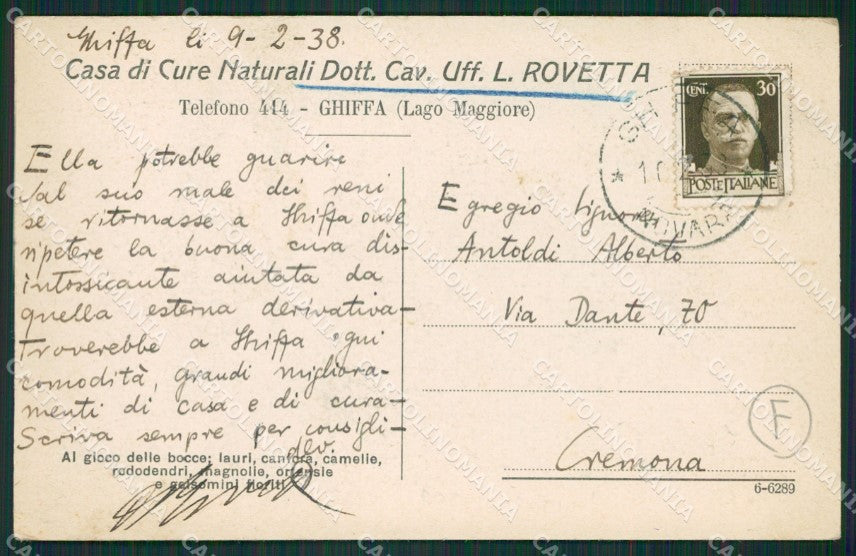 Ghiffa li 9-2-38.
Casa di Cure Naturali Dott. Cav. Uff. L. ROVETTA
Telefono 414 - GHIFFA (Lago Maggiore)
Ella potrebbe guarire
dal suo male dei reni
se ritornasse a Ghiffa onde
ripetere la buona cura dis-
intossicante aiutata da
quella esterna derivativa-
Troverebbe a Ghiffa ogni
comodità, grandi migliora-
menti di casa e di cura-
Scriva sempre per consigli-
dev.
Al gioco delle bocce; lauri, canfora, camelie,
rododendri, magnolie, ortensie
e gelsomini fioriti
CENT. 30
POSTE ITALIANE
NOVARA
Egregio Signore
Antoldi Alberto
Via Dante, 70
Cremona
F
6-6289
CARTOLINOMANIA